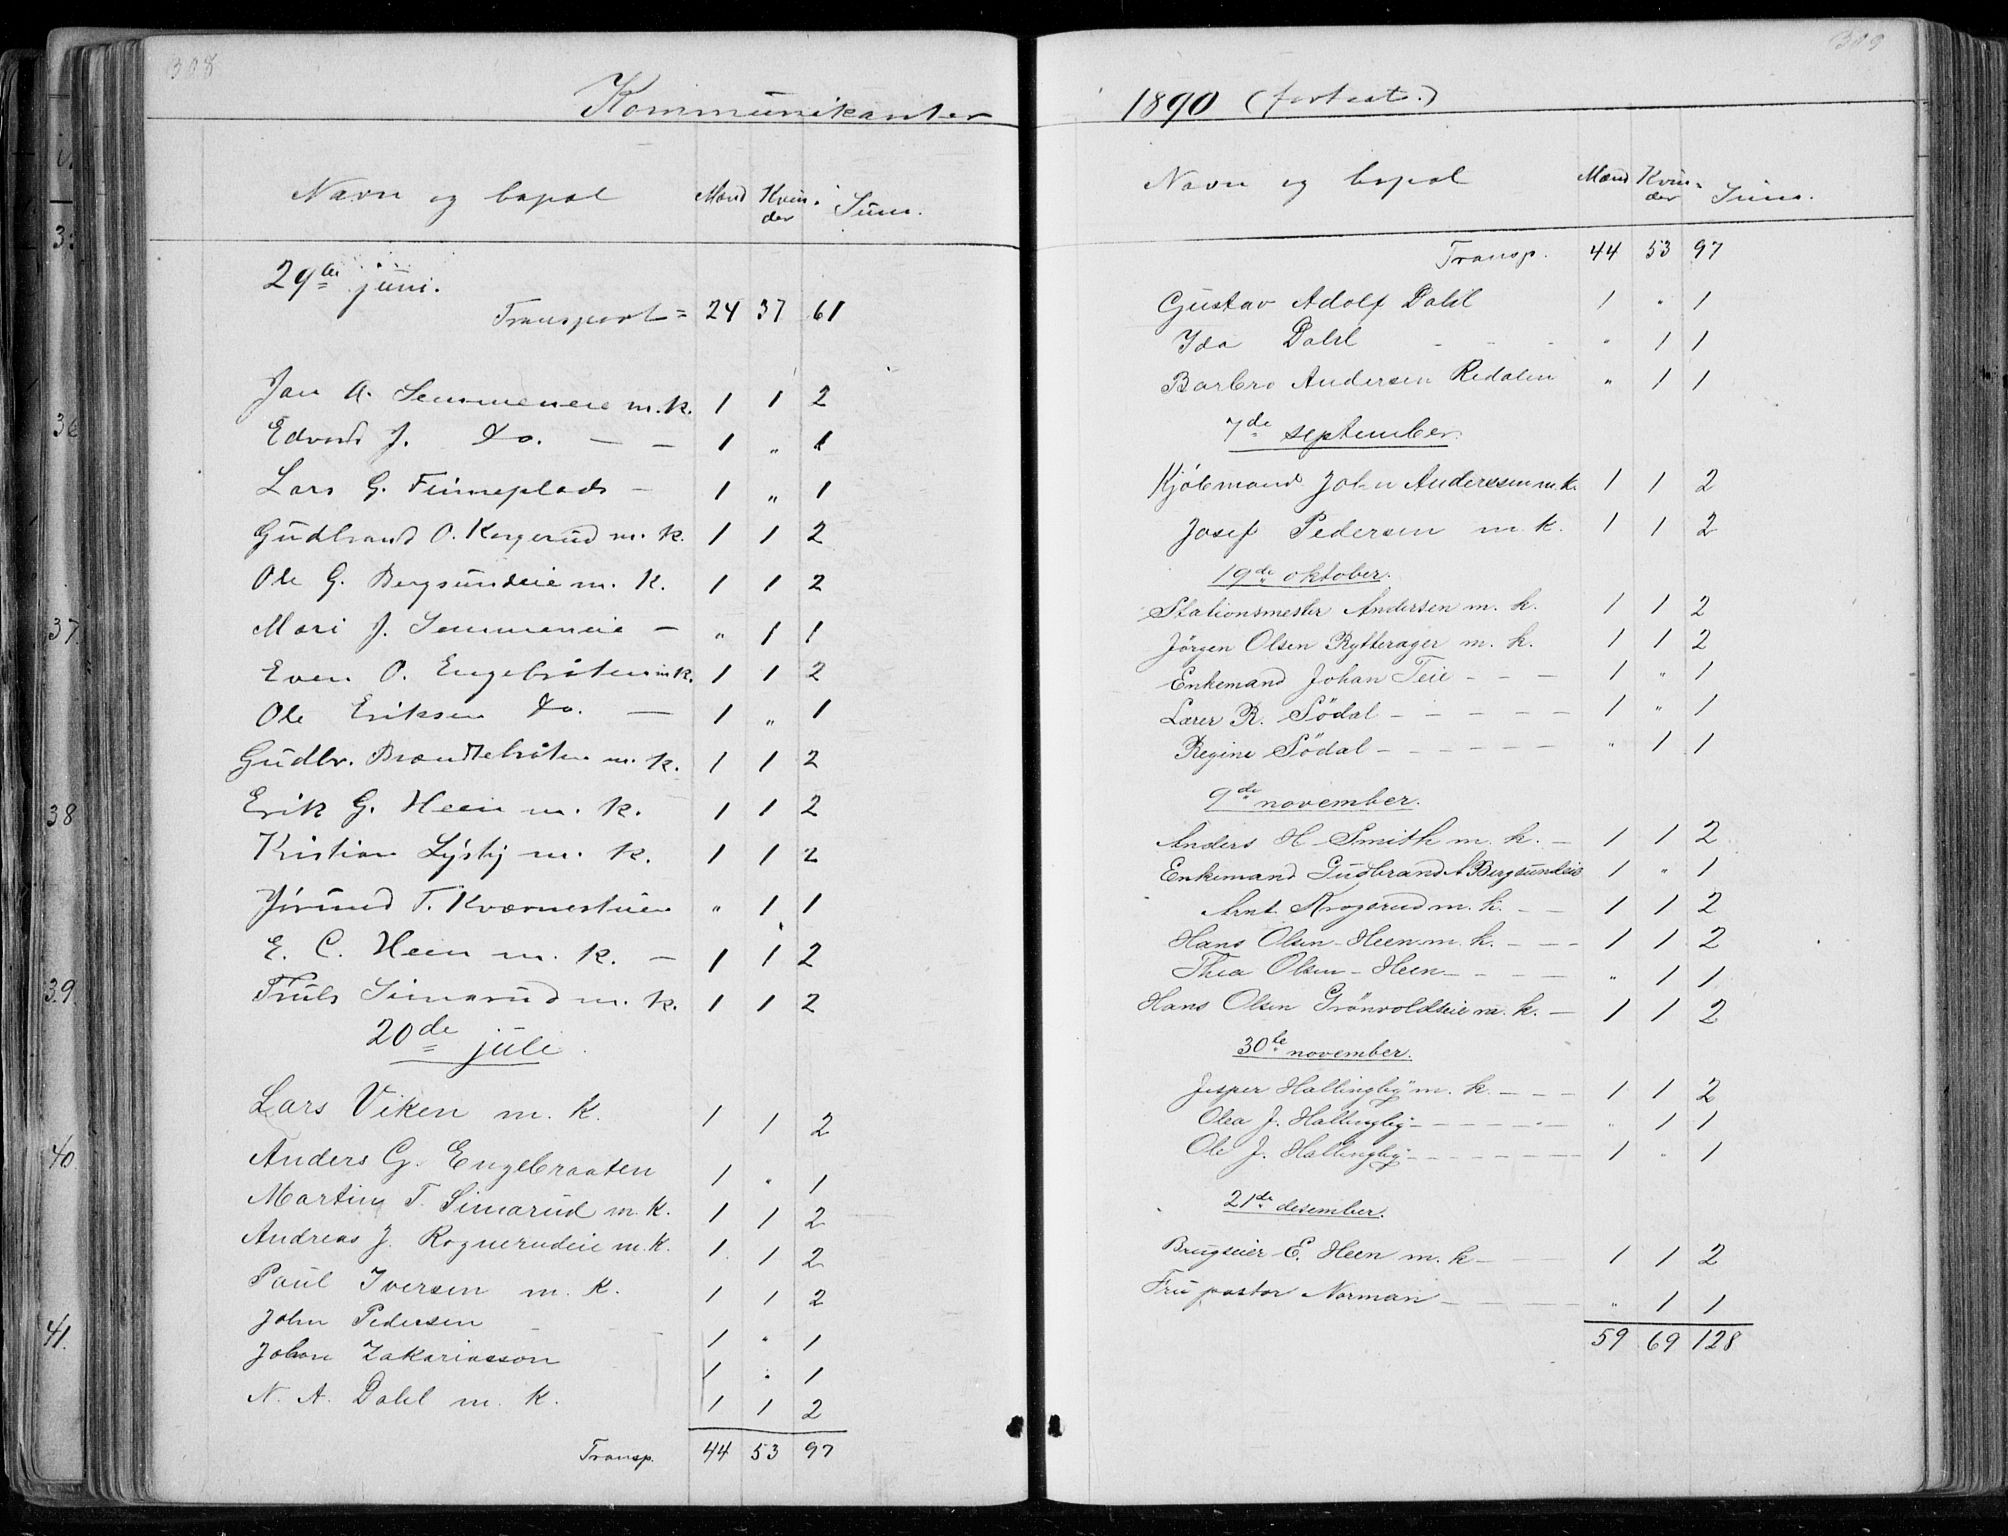 308
Kommunikanter
Navn og bopæl Mænd Kvin- der Sum.
29de juni.
Transport = 24 37 61
Jan A. Semmeneie m.k. 1 1 2
Edvard J. Do. — — 1 " 1
Lars G. Finneplads — 1 " 1
Gudbrand O. Kragerud m. k. 1 1 2
Ole G. Bergsundeie m. K. 1 1 2
Mari J. Semmeneie — " 1 1
Even O. Engebråten m k. 1 1 2
Ole Eriksen Do. — 1 " 1
Gudbr. Brændtebråten m. k. 1 1 2
Erik G. Heen m. k. 1 1 2
Kristian Lysby m. k. 1 1 2
Jørund T. Kværnestuen " 1 1
E. C. Heen m. k. — 1 1 2
Truls Simarud m. k. 1 1 2
20de juli
Lars Viken m. K. 1 1 2
Anders G. Engebraaten 1 " 1
Martin T. Simarud m. K. 1 1 2
Andreas J. Rognerudeie m. K. 1 1 2
Paul Iversen m. K. 1 1 2
John Pedersen 1 " 1
Johan Zakariasson 1 " 1
N. A. Dahl m. K. 1 1 2
Transp. 44 53 97
309
1890 (fortsat.)
Navn og bopæl Mænd Kvin- der Sum.
Transp. 44 53 97
Gustav Adolf Dahl 1 " 1
Ida Dahl - - - " 1 1
Barbro Andersen Redalen " 1 1
7de september.
Kjøbmand John Anderssen m. k. 1 1 2
Josef Pedersen m k. 1 1 2
19de oktober.
Stationsmester Andersen m. k. 1 1 2
Jørgen Olsen Rytterager m. k. 1 1 2
Enkemand Johan Teie - - - 1 " 1
Lærer R. Södal - - - - - 1 " 1
Regine Södal - - - - - - " 1 1
9de november.
Anders H Smith m. k. - 1 1 2
Enkemand Gudbrand A Bergsundeie 1 " 1
Arnt Kragerud m. k. - - 1 1 2
Hans Olsen Heen m. k. - - - 1 1 2
Thea Olsen - Heen - - - - " 1 1
Hans Olsen Grönvoldseie m. k. - 1 1 2
30te november.
Jesper Hallingby m. k. - - - 1 1 2
Olea J. Hallingby - - - - - - " 1 1
Ole J. Hallingby - - - - - - - 1 " 1
21de desember.
Brugseier E. Heen m. k - - 1 1 2
Fru pastor Norman - - - - " 1 1
59 69 128
36
37.
38
39.
40
41.